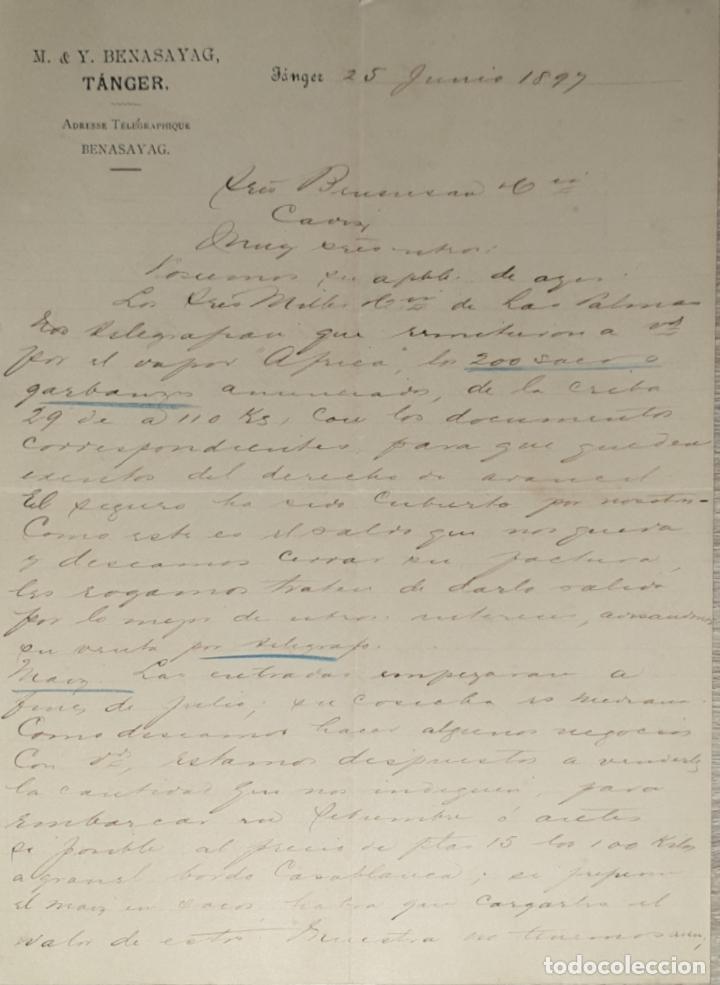 M. & Y. BENASAYAG,
TÁNGER.
ADRESSE TÉLÉGRAPHIQUE
BENASAYAG.
Tánger 25 Junio 1897
Sres Benasusan
Muy sres ntros:
Poseemos su apble. de ayer.
Los Sres Miller de Las Palmas
nos telegrafian que remitieron a
por el vapor "Africa", los 200 sacos
garbanzos anunciados, de la criba
29 de a 110 Kgs, con los documentos
correspondientes para que queden
exentos del derecho de arancel
El seguro ha sido cubierto por nosotros
Como este es el saldo que nos queda
y deseamos cerrar su factura,
les rogamos traten de darle salida
por lo mejor de ntros intereses, avisandonos
su venta por telegrafo.
Maiz. Las entradas empezaran a
fines de Julio; su cosecha es mediana.
Como deseamos hacer algunos negocios
con Vds, estamos dispuestos a venderles
la cantidad que nos indiquen, para
embarcar en Setiembre ó antes
si posible al precio de ptas 15 los 100 Kilos
a granel bordo Casablanca; si prefieren
el maiz en sacos habra que cargarles el
valor de estos. Muestra no tenemos aun,
todocoleccion
todocoleccion.net